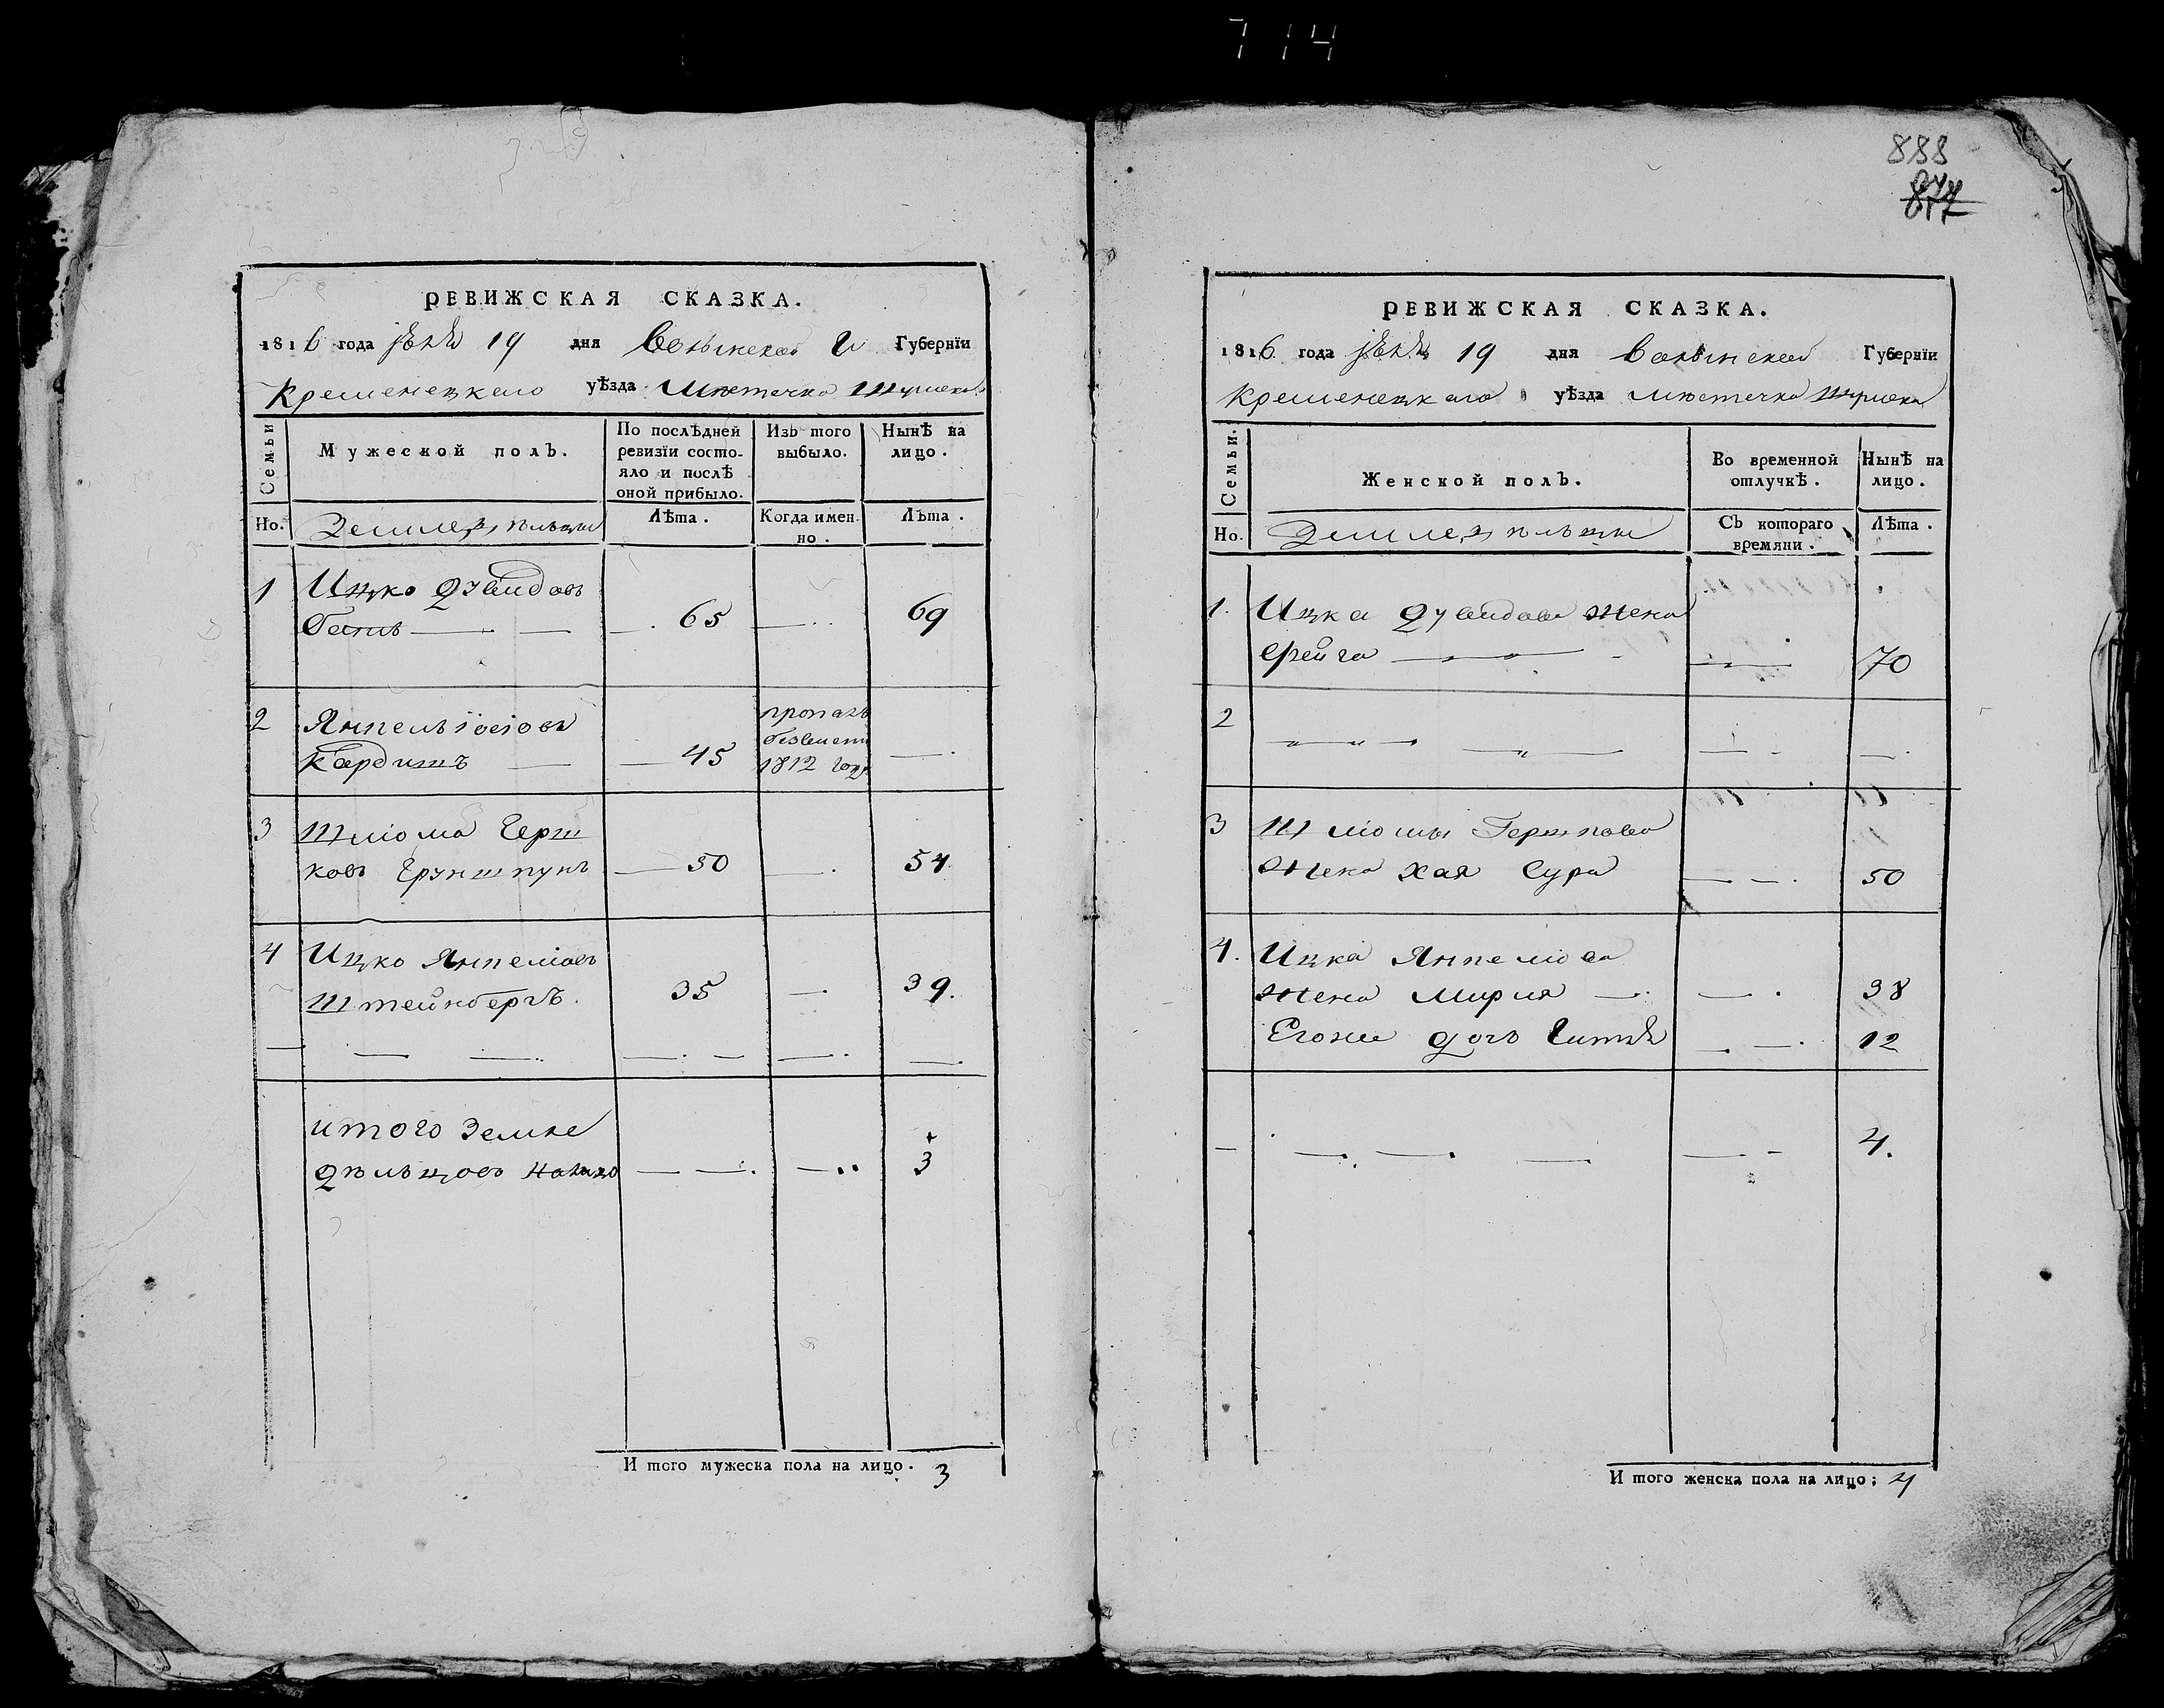 714
РЕВИЖСКАЯ СКАЗКА.
1816 года 19 дня Волынской Губернїи
Кременецкаго уѣзда Мѣстечка Шумска
Семьи
Мужеской полъ.
По послѣдней ревизїи состо-яло и послѣ оной прибыло.
Изъ того выбыло.
Нынѣ на лицо.
Но.
Земледѣльцы
Лѣта.
Когда имен-но.
Лѣта.
1 Ицко Дувидовъ
65 69
2 Янкель Іосіовъ
Кардишъ 45 пропалъ безвести 1812 года
3 Шліома Герш
ковъ Груншпунъ 50 54
4 Ицко Янкеліовъ
Штейнбергъ. 35 39.
итого Земле
дѣльцовъ налицо 3
И того мужеска пола на лицо. 3
888
877
РЕВИЖСКАЯ СКАЗКА.
1816 года 19 дня Волынской Губернїи
Кременецкаго уѣзда Мѣстечка Шумска
Семьи.
Женской полъ.
Во временной отлучкѣ.
Нынѣ на лицо.
Но.
Земледѣльцы
Съ котораго времяни.
Лѣта.
1. Ицка Дувидова жена
Фейга 70
2
3 Шліомы Гершкова
жена Хая Сура 50
4. Ицка Янкеліова
жена Мирля 38
Егоже дочь Гитля 12
4.
И того женска пола на лицо; 4